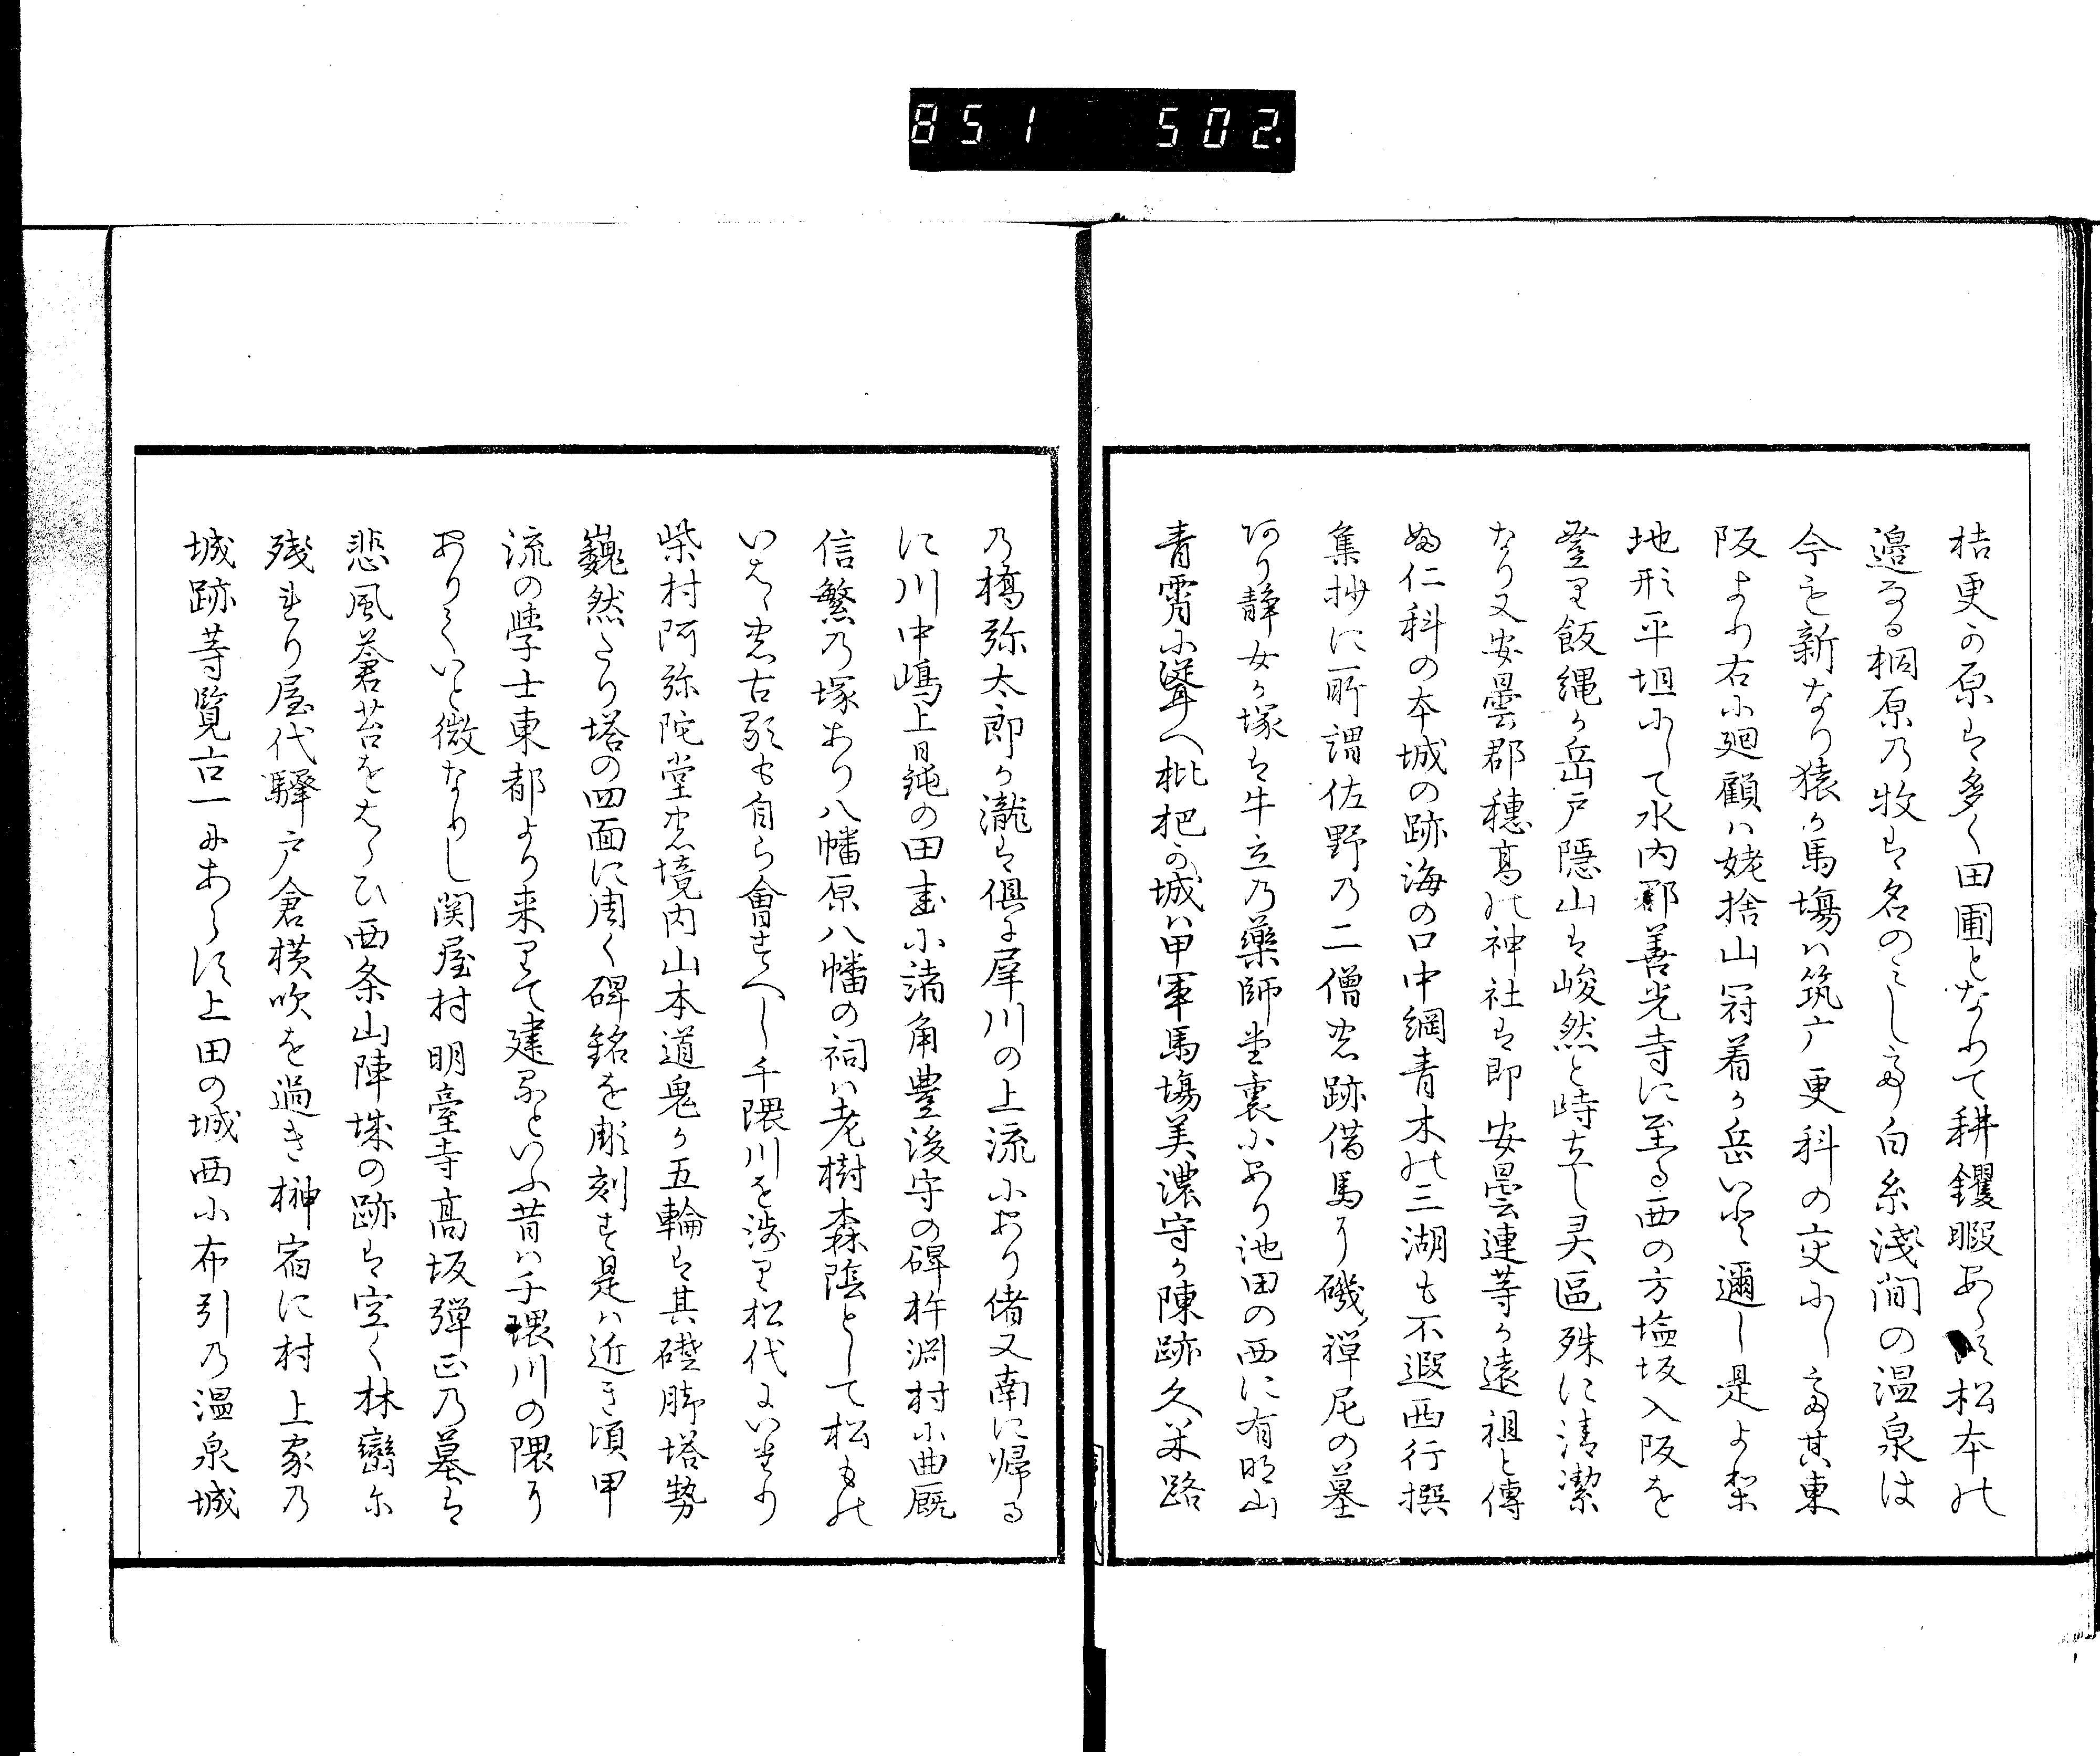 851 502.
桔更の原は多く田圃となりて耕钁暇あらす松本の
邉なる桐原乃牧は名のミして白糸淺間の温泉は
今も新なり猿か馬塲ハ筑广更科の交にして其東
阪より右に廻顧ハ姥捨山冠着か岳いと邇し是より
地形平坦にして水内郡善光寺に至る西の方塩坂入阪を
登り飯縄か岳戸隠山は峻然と峙立し灵區殊に清潔
なり又安曇郡穂髙の神社は即安曇連等か遠祖と傳
ふ仁科の本城の跡海の口中綱青木の三湖も不遐西行撰
集抄に所謂佐野乃二僧の跡借馬に磯禅尼の墓
あり静女か塚は牛立乃藥師堂裏にあり池田の西に有明山
青霄に聳へ枇杷の城ハ甲軍馬塲美濃守か陳跡久米路
乃橋弥太郎か瀧は倶に犀川の上流にあり偖又南に帰る
に川中嶋上氷鉋の田畫に諸角豊後守の碑杵渕村に典厩
信繁乃塚あり八幡原八幡の祠ハ老樹森陰として松もの
いはゝ懐古の歎も自ら會すへし千隈川を渉り松代にいたり
柴村阿弥陀堂の境内山本道鬼か五輪は其礎脚塔勢
巍然たり塔の四面に周く碑銘を彫刻す是ハ近き頃甲
流の學士東都より来りて建るといふ昔ハ千隈川の隈に
ありていと微なりし関屋村明臺寺髙坂弾正乃墓は
悲風蒼苔をはらひ西条山陣城の跡は空く林巒に
残まり屋代驛戸倉横吹を過き榊宿に村上家乃
城跡等覧古一にあらす上田の城西に布引乃温泉城